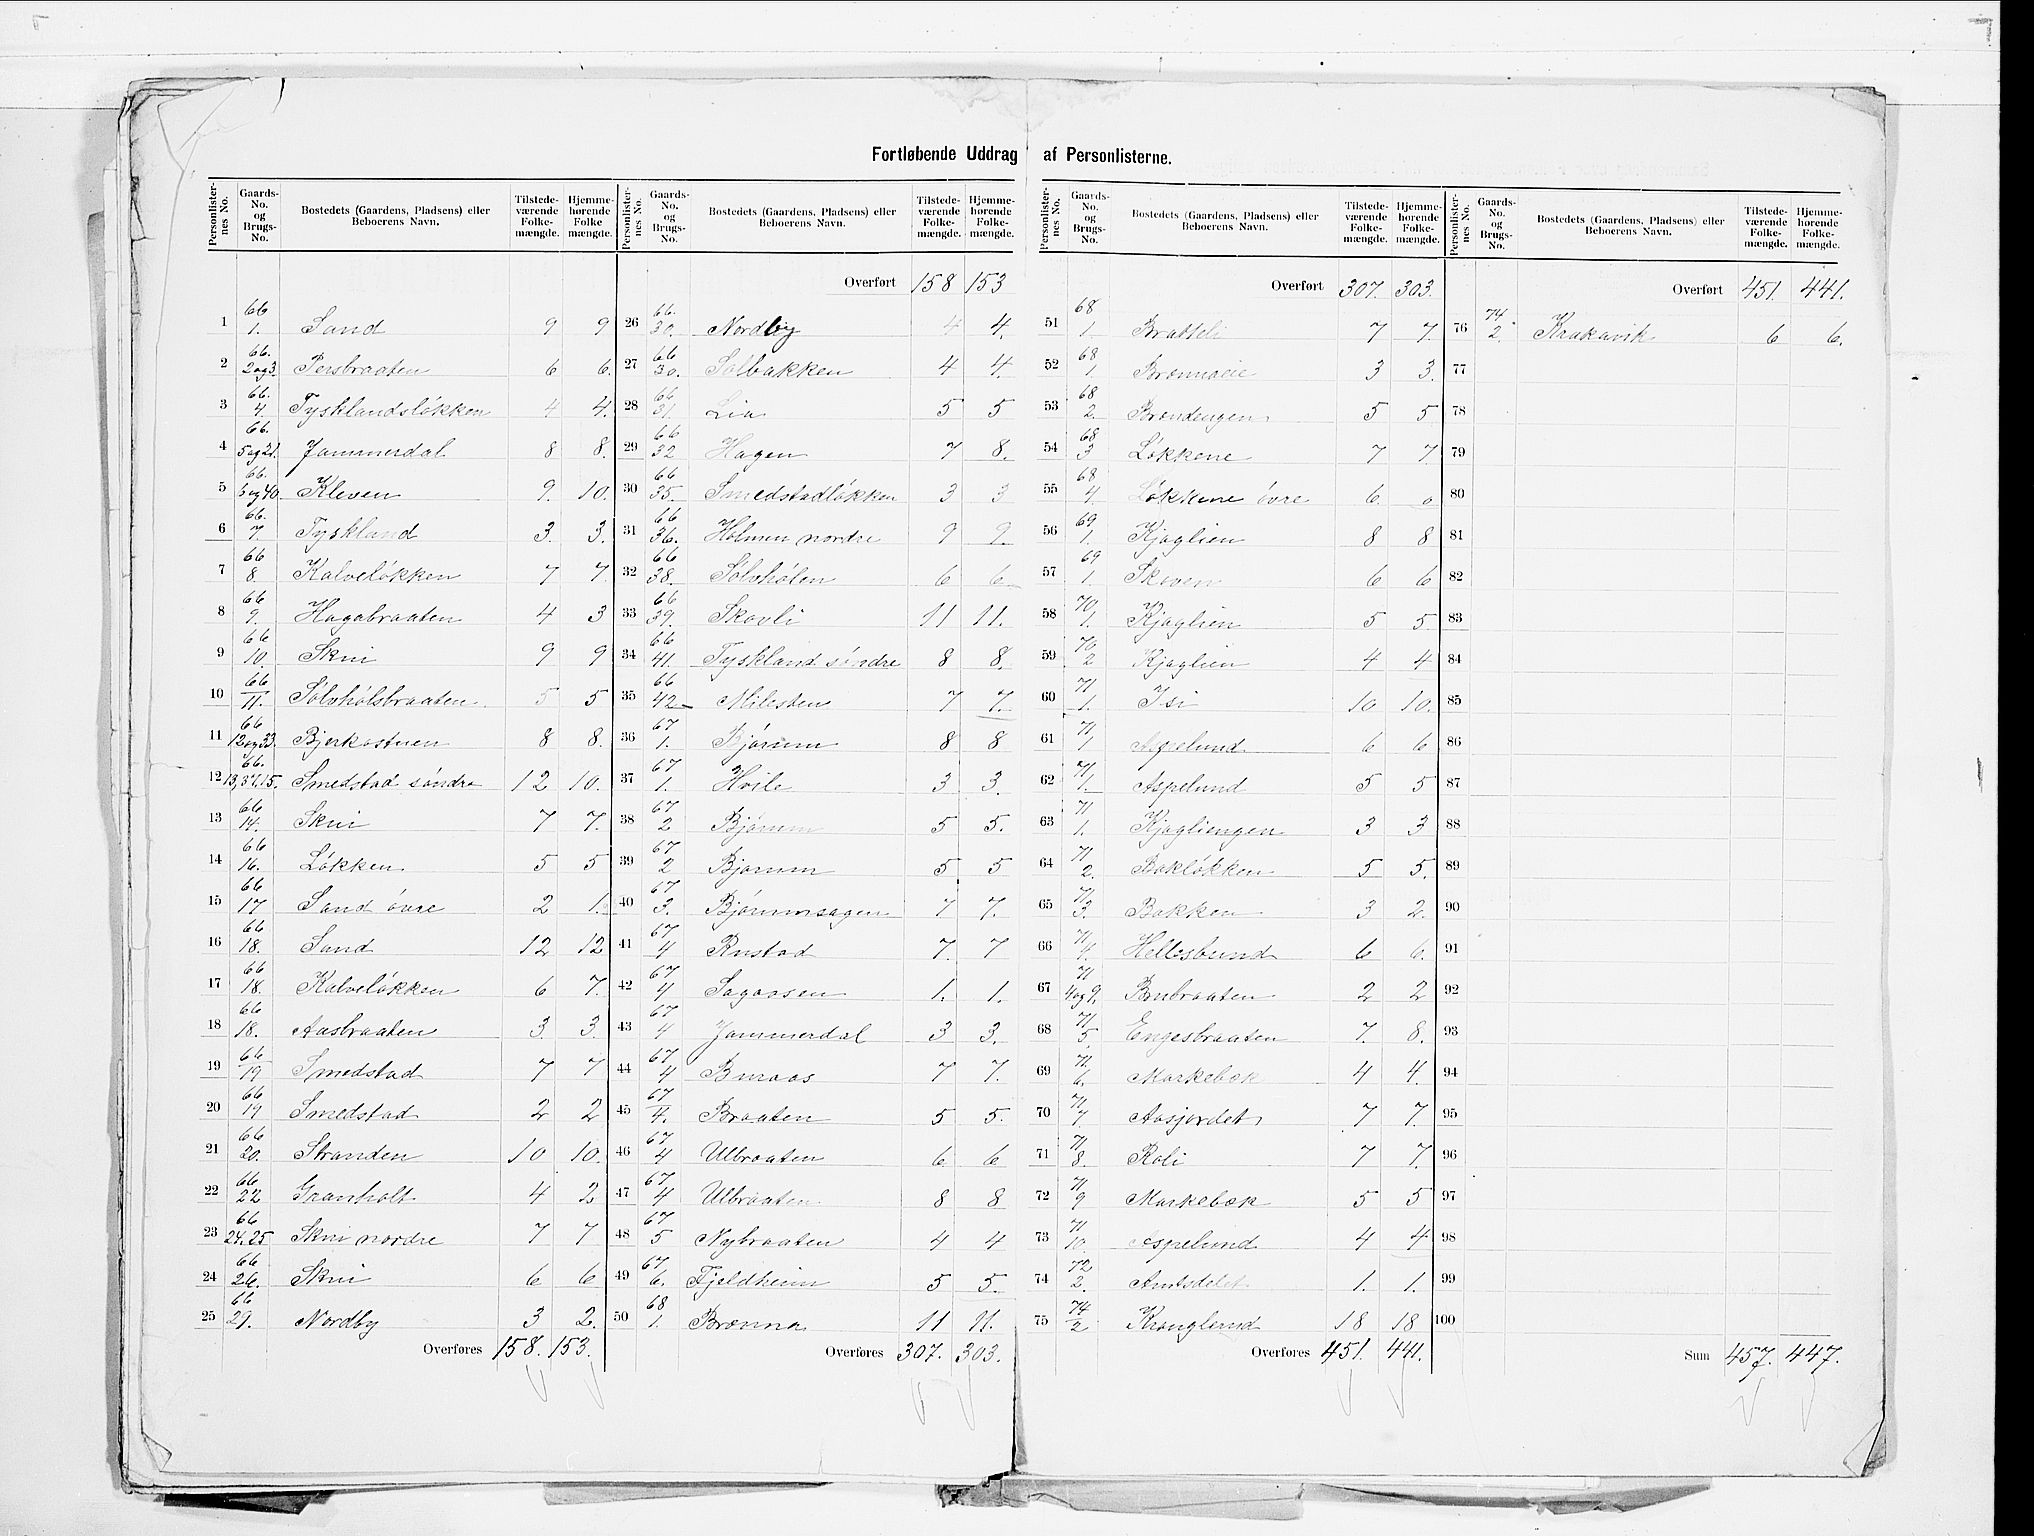 Fortløbende Uddrag af Personlisterne.
Personlister-nes No. | Gaards-No. og Brugs-No. | Bostedets (Gaardens, Pladsens) eller Beboerens Navn. | Tilstede-værende Folke-mængde. | Hjemme-hørende Folke-mængde.
1 | 66 1. | Sand | 9 | 9
2 | 66. 2 og 3. | Persbraaten | 6 | 6.
3 | 66. 4. | Tysklandsløkken | 4 | 4.
4 | 66. 5 og 21. | Jammerdal | 8 | 8.
5 | 66. 6 og 40. | Kleven | 9. | 10.
6 | 66. 7. | Tyskland | 3. | 3.
7 | 66 8. | Kalveløkken | 7 | 7.
8 | 66 9. | Hagabraaten | 4 | 3
9 | 66 10. | Skui | 9 | 9
10 | 66 11. | Sølvhølsbraaten | 5 | 5
11 | 66 12 og 33. | Bjerkastuen | 8 | 8.
12 | 66. 13, 37, 15. | Smedstad søndre | 12 | 10.
13 | 66 14. | Skui | 7 | 7.
14 | 66 16. | Løkken | 5 | 5
15 | 66 17 | Sand øvre | 2 | 1.
16 | 66 18. | Sand | 12 | 12
17 | 66 18. | Kalveløkken | 6 | 7.
18 | 66 18. | Aasbraaten | 3. | 3.
19 | 66 19 | Smedstad | 7 | 7
20 | 66 19 | Smedstad | 2 | 2
21 | 66 20. | Stranden | 10 | 10.
22 | 66 22 | Granholt | 4 | 2
23 | 66 24. 25 | Skui nordre | 7 | 7
24 | 66 26. | Skui | 6 | 6
25 | 66 29. | Nordby | 3 | 2.
Overføres | 158. | 153.
Personlister-nes No. | Gaards-No. og Brugs-No. | Bostedets (Gaardens, Pladsens) eller Beboerens Navn. | Tilstede-værende Folke-mængde. | Hjemme-hørende Folke-mængde.
Overført | 158 | 153
26 | 66. 30. | Nordby | 4 | 4.
27 | 66 30. | Solbakken | 4 | 4.
28 | 66 31. | Lia | 5 | 5
29 | 66 32 | Hagen | 7 | 8.
30 | 66 35. | Smedstadløkken | 3 | 3
31 | 66 36. | Holmen nordre | 9 | 9.
32 | 66 38. | Sølvhølen | 6 | 6
33 | 66 39. | Skovli | 11 | 11.
34 | 66 41. | Tyskland søndre | 8 | 8.
35 | 66 42 | Milesten | 7 | 7.
36 | 67 1. | Bjørum | 8 | 8
37 | 67 1. | Hvile | 3 | 3.
38 | 67 2 | Bjørum | 5 | 5.
39 | 67 2 | Bjørum | 5 | 5
40 | 67 3. | Bjørumsagen | 7 | 7.
41 | 67 4 | Rustad | 7. | 7
42 | 67 4 | Sagaasen | 1. | 1.
43 | 67 4 | Jammerdal | 3 | 3.
44 | 67 4 | Buraas | 7 | 7.
45 | 67 4. | Braaten | 5 | 5.
46 | 67 4 | Ulbraaten | 6 | 6
47 | 67 4 | Ulbraaten | 8 | 8
48 | 67 5 | Nybraaten | 4 | 4
49 | 67 6. | Fjeldheim | 5 | 5.
50 | 68 1. | Brænna | 11 | 11.
Overføres | 307. | 303.
Personlister-nes No. | Gaards-No. og Brugs-No. | Bostedets (Gaardens, Pladsens) eller Beboerens Navn. | Tilstede-værende Folke-mængde. | Hjemme-hørende Folke-mængde.
Overført | 307. | 303.
51 | 68 1. | Bratteli | 7 | 7.
52 | 68 1 | 3 | 3.
53 | 68 2. | Brændengen | 5 | 5
54 | 68 3 | Løkkene | 7 | 7.
55 | 68 4. | Løkkene øvre | 6 | 0
56 | 69. 1. | Kjaglien | 8 | 8
57 | 69 1. | Skoven | 6 | 6
58 | 70. 1. | Kjaglien | 5 | 5.
59 | 70. 2 | Kjaglien | 4 | 4
60 | 71 1. | Isi | 10 | 10.
61 | 71 1 | Aspelund | 6 | 6
62 | 71 1. | Aspelund | 5 | 5
63 | 71 1. | Kjagliengen | 3 | 3
64 | 71 2. | Bakløkken | 5 | 5.
65 | 71 3. | Bakken | 3 | 2.
66 | 71 4. | Hellesbund | 6 | 6.
67 | 71 4 og 9. | Brubraaten | 2 | 2
68 | 71 5. | Engesbraaten | 7. | 8.
69 | 71. 6. | Markebæk | 4 | 4.
70 | 71 7. | Aasjordet | 7 | 7.
71 | 71 8. | Roli | 7 | 7.
72 | 71 9 | Markebæk | 5 | 5
73 | 71 10. | Aspelund | 4 | 4
74 | 72 2. | Amtsdelet | 1. | 1.
75 | 74 2 | Kranglerud | 18 | 18
Overføres | 451. | 441.
Personlister-nes No. | Gaards-No. og Brugs-No. | Bostedets (Gaardens, Pladsens) eller Beboerens Navn. | Tilstede-værende Folke-mængde. | Hjemme-hørende Folke-mængde.
Overført | 451. | 441.
76 | 74 2. | Krakavik | 6 | 6.
77
78
79
80
81
82
83
84
85
86
87
88
89
90
91
92
93
94
95
96
97
98
99
100
Sum | 457. | 447.